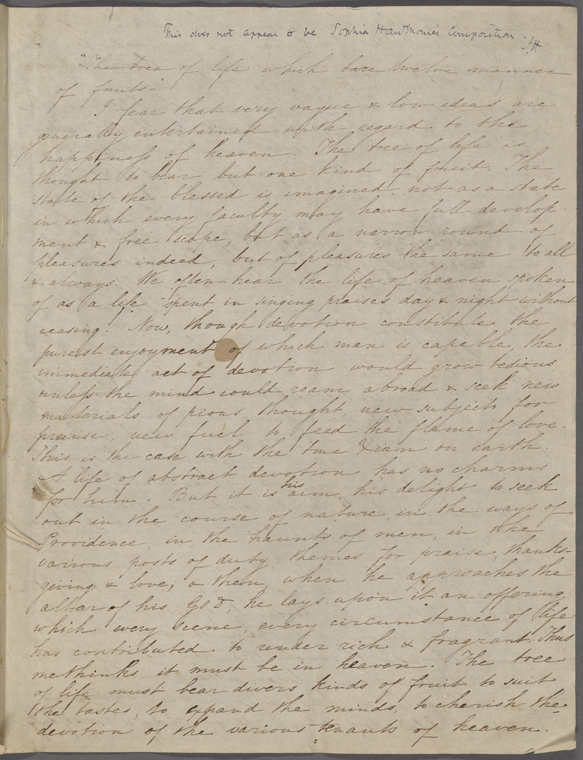 This does not appear to be Sophia Hawthorne's Composition. JH
"The tree of life which bare twelve manner
of fruits."
I fear that very vague & low ideas are
generally entertained with regard to the
happiness of heaven. The tree of life is
thought to bear but one kind of fruit. The
state of the blessed is imagined, not as a state
in which every faculty may have full develop
ment & free scope, but as a narrow round of
pleasures indeed, but of pleasures the same to all
& always. We often hear the life of heaven spoken
of as a life "spent in singing praises day & night without
ceasing." Now, though devotion constitute the
purest enjoyment of which man is capable, the
immediate act of devotion would grow tedious
unless the mind could roam abroad & seek new
materials of pious thought, new subjects for
praise, new fuel to feed the flame of love.
This is the case with the true Xian on earth.
A life of abstract devotion has no charms
for him. But it is his aim, his delight to seek
out in the course of nature, in the ways of
Providence, in the haunts of men, in the
various posts of duty, themes for praise, thanks-
giving & love; & then, when he approaches the
altar of his GOD, he lays upon it an offering
which every scene, every circumstance of life
has contributed to render rich & fragrant. Thus
methinks it must be in heaven. The tree
of life must bear divers kinds of fruit to suit
the tastes, to expand the minds, to cherish the
devotion of the various tenants of heaven.